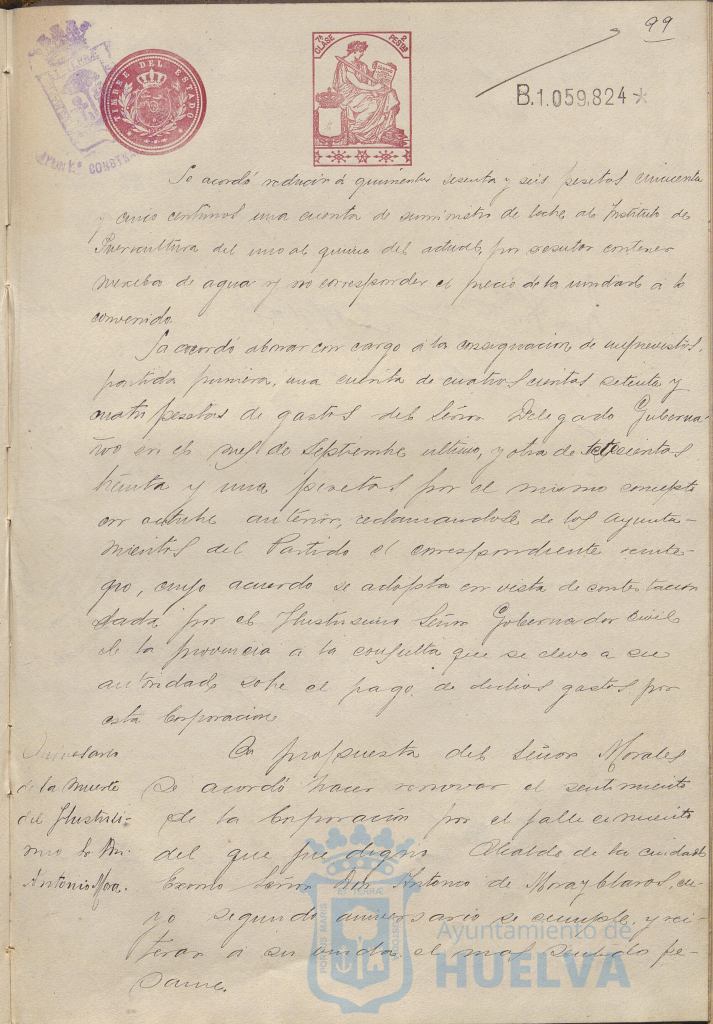 99
7ª CLASE
2 PESTAS
TIMBRE DEL ESTADO
B.1.059.824
AYUNTº CONSTI
Se acordó reducir á quinientas sesenta y seis pesetas cincuenta
y cinco centimos una cuenta de suministro de leche al Instituto de
Puericultura del uno al quince del actual, por resultar contener
mezcla de agua y no corresponder el precio de la unidad a lo
convenido.
Se acordó abonar con cargo á la consignacion de imprevistos,
partida primera, una cuenta de cuatrocientas setenta y
cuatro pesetas de gastos del Señor Delegado Guberna-
tivo en el mes de Septiembre ultimo, y otra de setecientas
treinta y una pesetas por el mismo concepto
en octubre anterior, reclamandole de los Ayunta-
mientos del Partido el correspondiente reinte-
gro, cuyo acuerdo se adopta en vista de contestacion
dada por el Ilustrisimo Señor Gobernador Civil
de la provincia a la consulta que se elevo a su
autoridad sobre el pago de dichos gastos por
esta Corporacion
Aniversario
de la muerte
del Ilustrisi-
mo Sr. Dn.
Antonio Mora.
A propuesta del Señor Morales
se acordó hacer renovar el sentimiento
de la Corporación por el fallecimiento
del que fue digno Alcalde de la ciudad
Excmo Señor Don Antonio de Mora y Claros, cu-
yo segundo aniversario se cumple, y rei-
terar a su viuda el mas sentido pe-
same.
PORTUS MARIS
ET TERRÆ
CUSTODIA
Ayuntamiento de
HUELVA